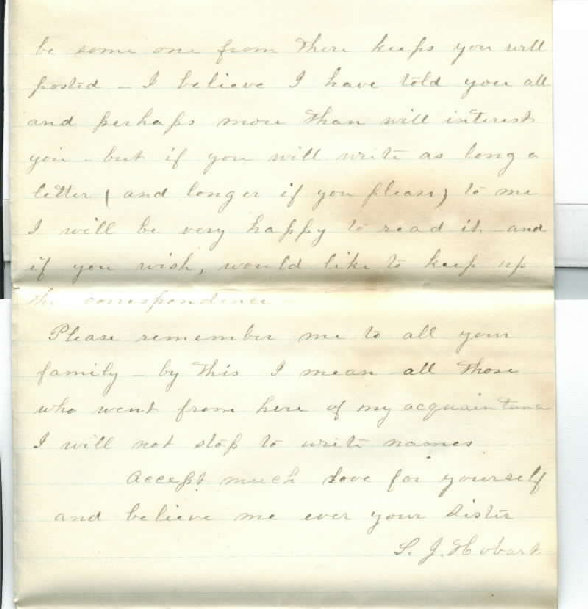 be some one from there keeps you well
posted - I believe I have told you all
and perhaps more than will interest
you - but if you will write as long a
letter (and longer if you please) to me
I will be very happy to read it and
if you wish, would like to keep up
the correspondence
Please remember me to all your
family - by this I mean all those
who went from here of my acquaintance
I will not stop to write names
Accept much love for yourself
and believe me ever your Sister
S. J. Hobart